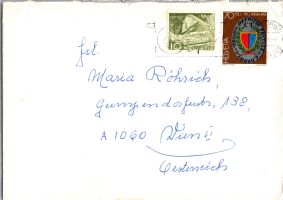 10
70
HELVETIA
Frl.
Maria Röhrich,
Gumpendorferstr. 138,
A 1060 Wien
Österreich